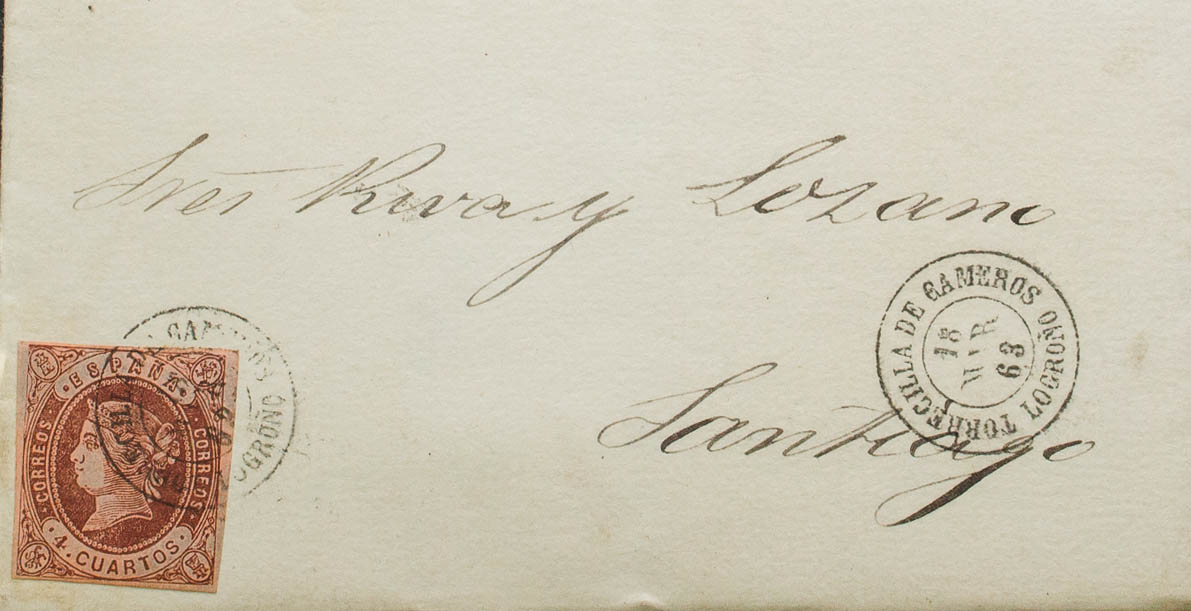 Sres Riva y Lozano
Santiago
TORRECILLA DE CAMEROS LOGROÑO
15
MAR
63
ESPAÑA
CORREOS
CORREOS
4. CUARTOS
LOGROÑO